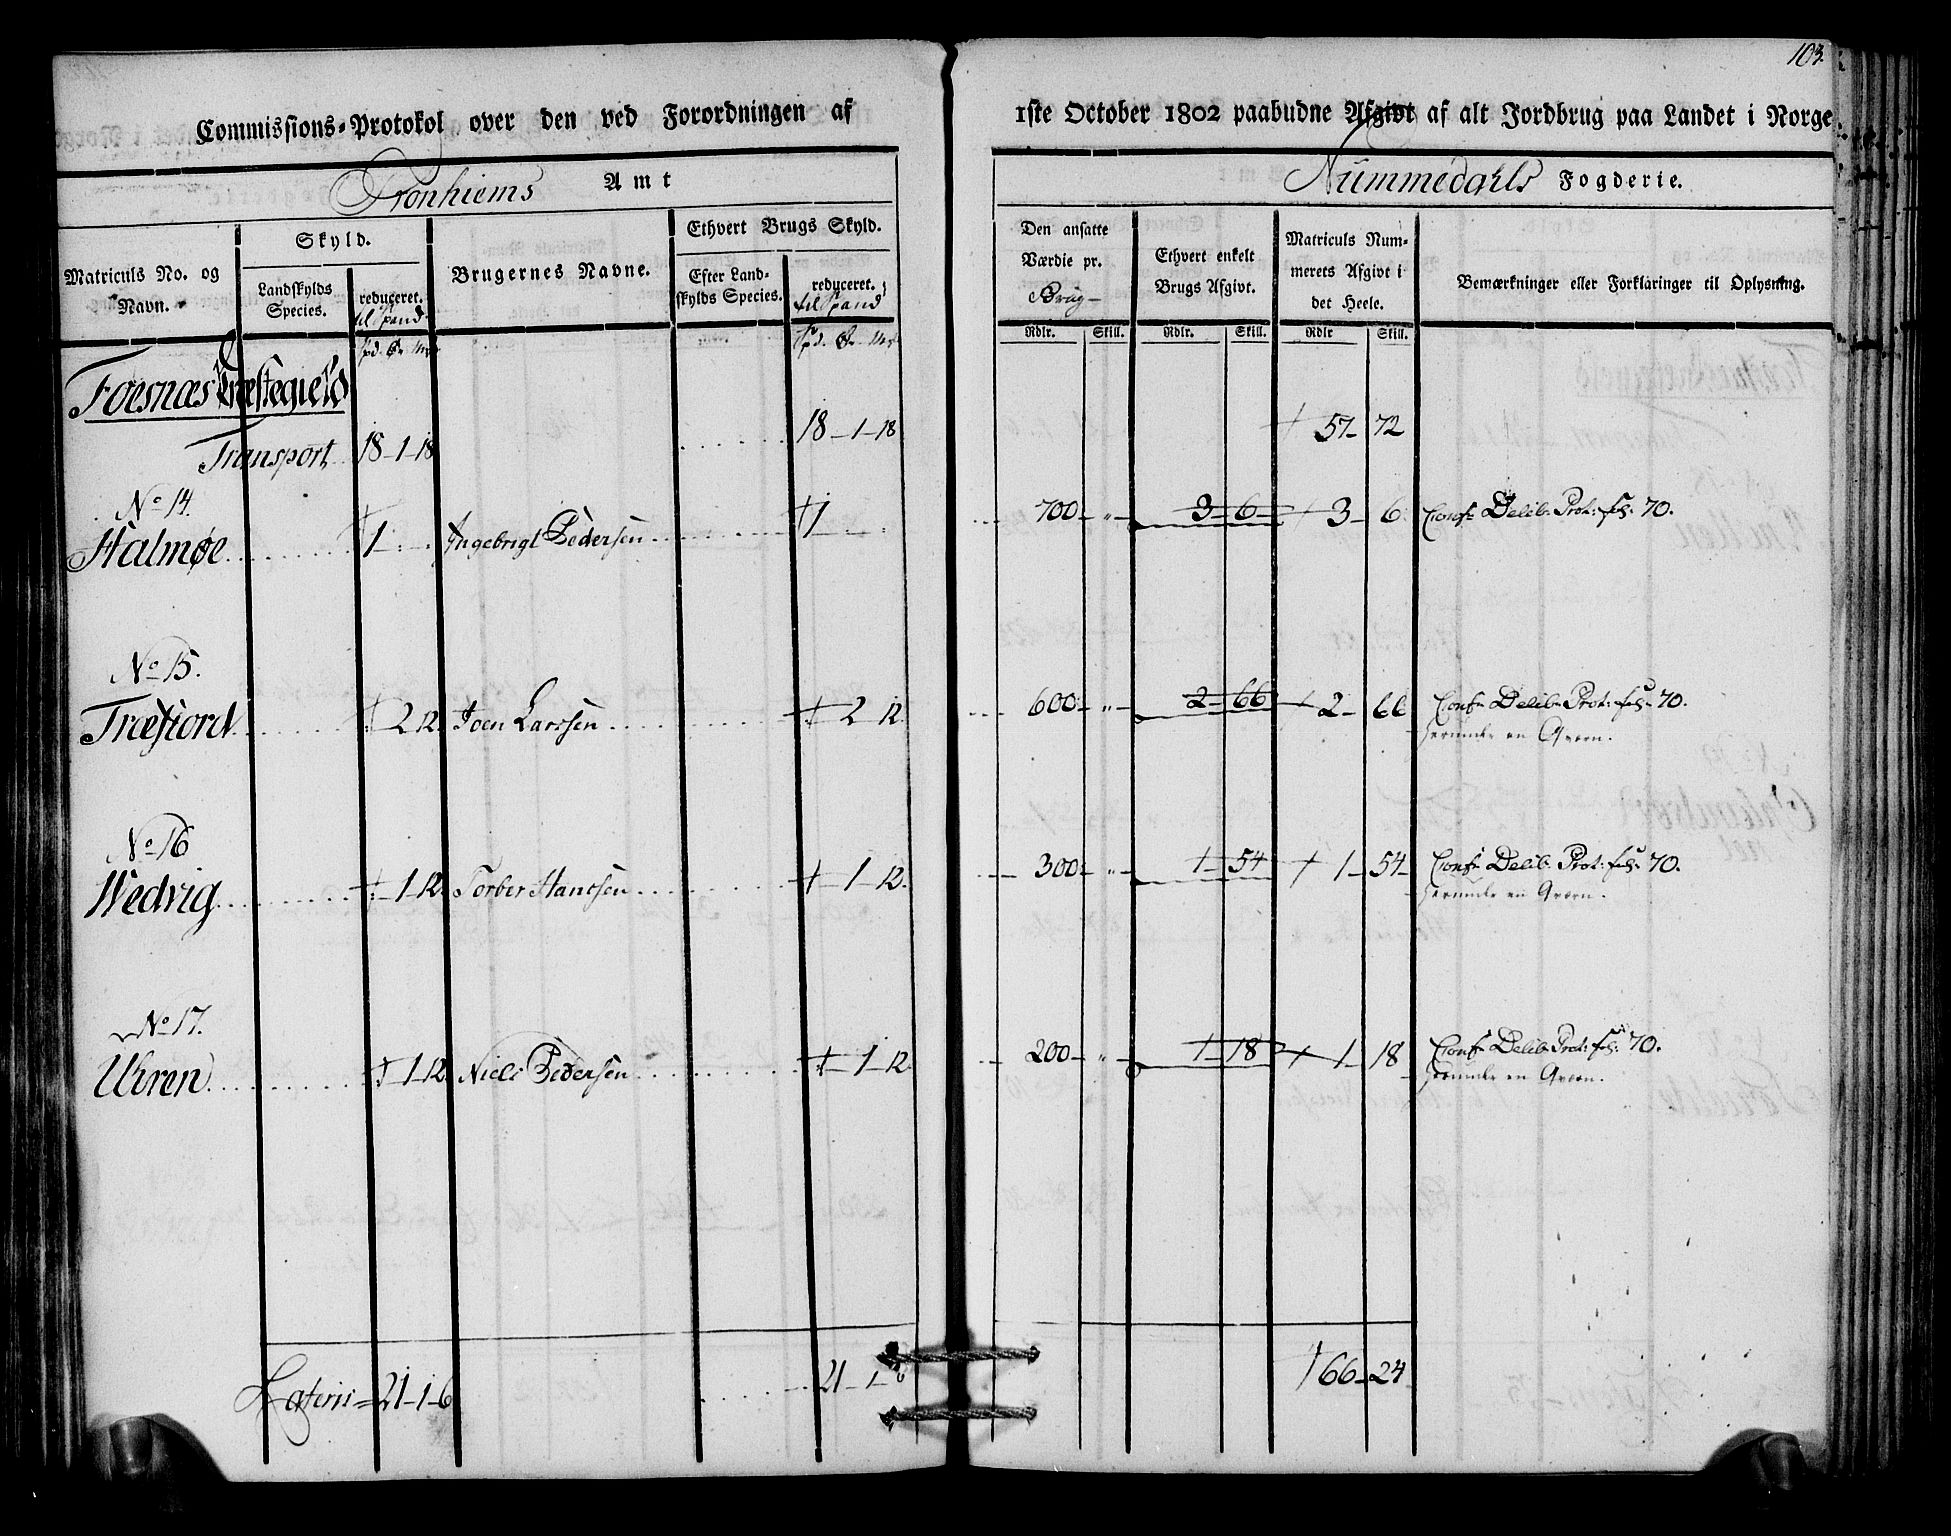 103.
Commissions-Protokol over den ved Forordningen af 1ste October 1802 paabudne Afgivt af alt Jordbrug paa Landet i Norge
Tronhiems Amt
Nummedahls Fogderie.
Matriculs No. og Navn.
Skyld.
Landskylds Species.
reduceret. til Spand
Brugernes Navne.
Ethvert Brugs Skyld.
Efter Land-skylds Species.
reduceret. til Spand
Den ansatte Værdie pr. Brug
Ethvert enkelt Brugs Afgivt.
Matriculs Num-merets Afgivt i det Heele.
Bemærkninger eller Forklaringer til Oplysning.
Spd. Ør Mrk
Spd. Ør Mrk
Rdlr. Skill. Rdlr. Skill. Rdlr Skill.
Foesnæs Præstegield
Transport 18-1-18 18-1-18 57-72
No 14.
Halmøe 1 Ingebrigt Pedersen 1 700 " 3-6 3-6 Conf. Delib. Prot: fol. 70.
No 15.
Træfiord 2 12. Joen Larssen 2 12 600 " 2-66 2-66 Conf. Delib. Prot: fol. 70.
herunder en Qværn.
No 16
Wedvig 1-12. Torber Hanssen 1-12. 300 " 1-54 1-54 Conf. Delib. Prot: fol. 70.
herunder en Qværn.
No 17.
Uhren 1-12 Niels Pedersen 1-12. 200 " 1-18 1-18 Conf. Delib. Prot: fol. 70.
herunder en Qværn.
Lateris = 21-1-6 21-1-6 66-24